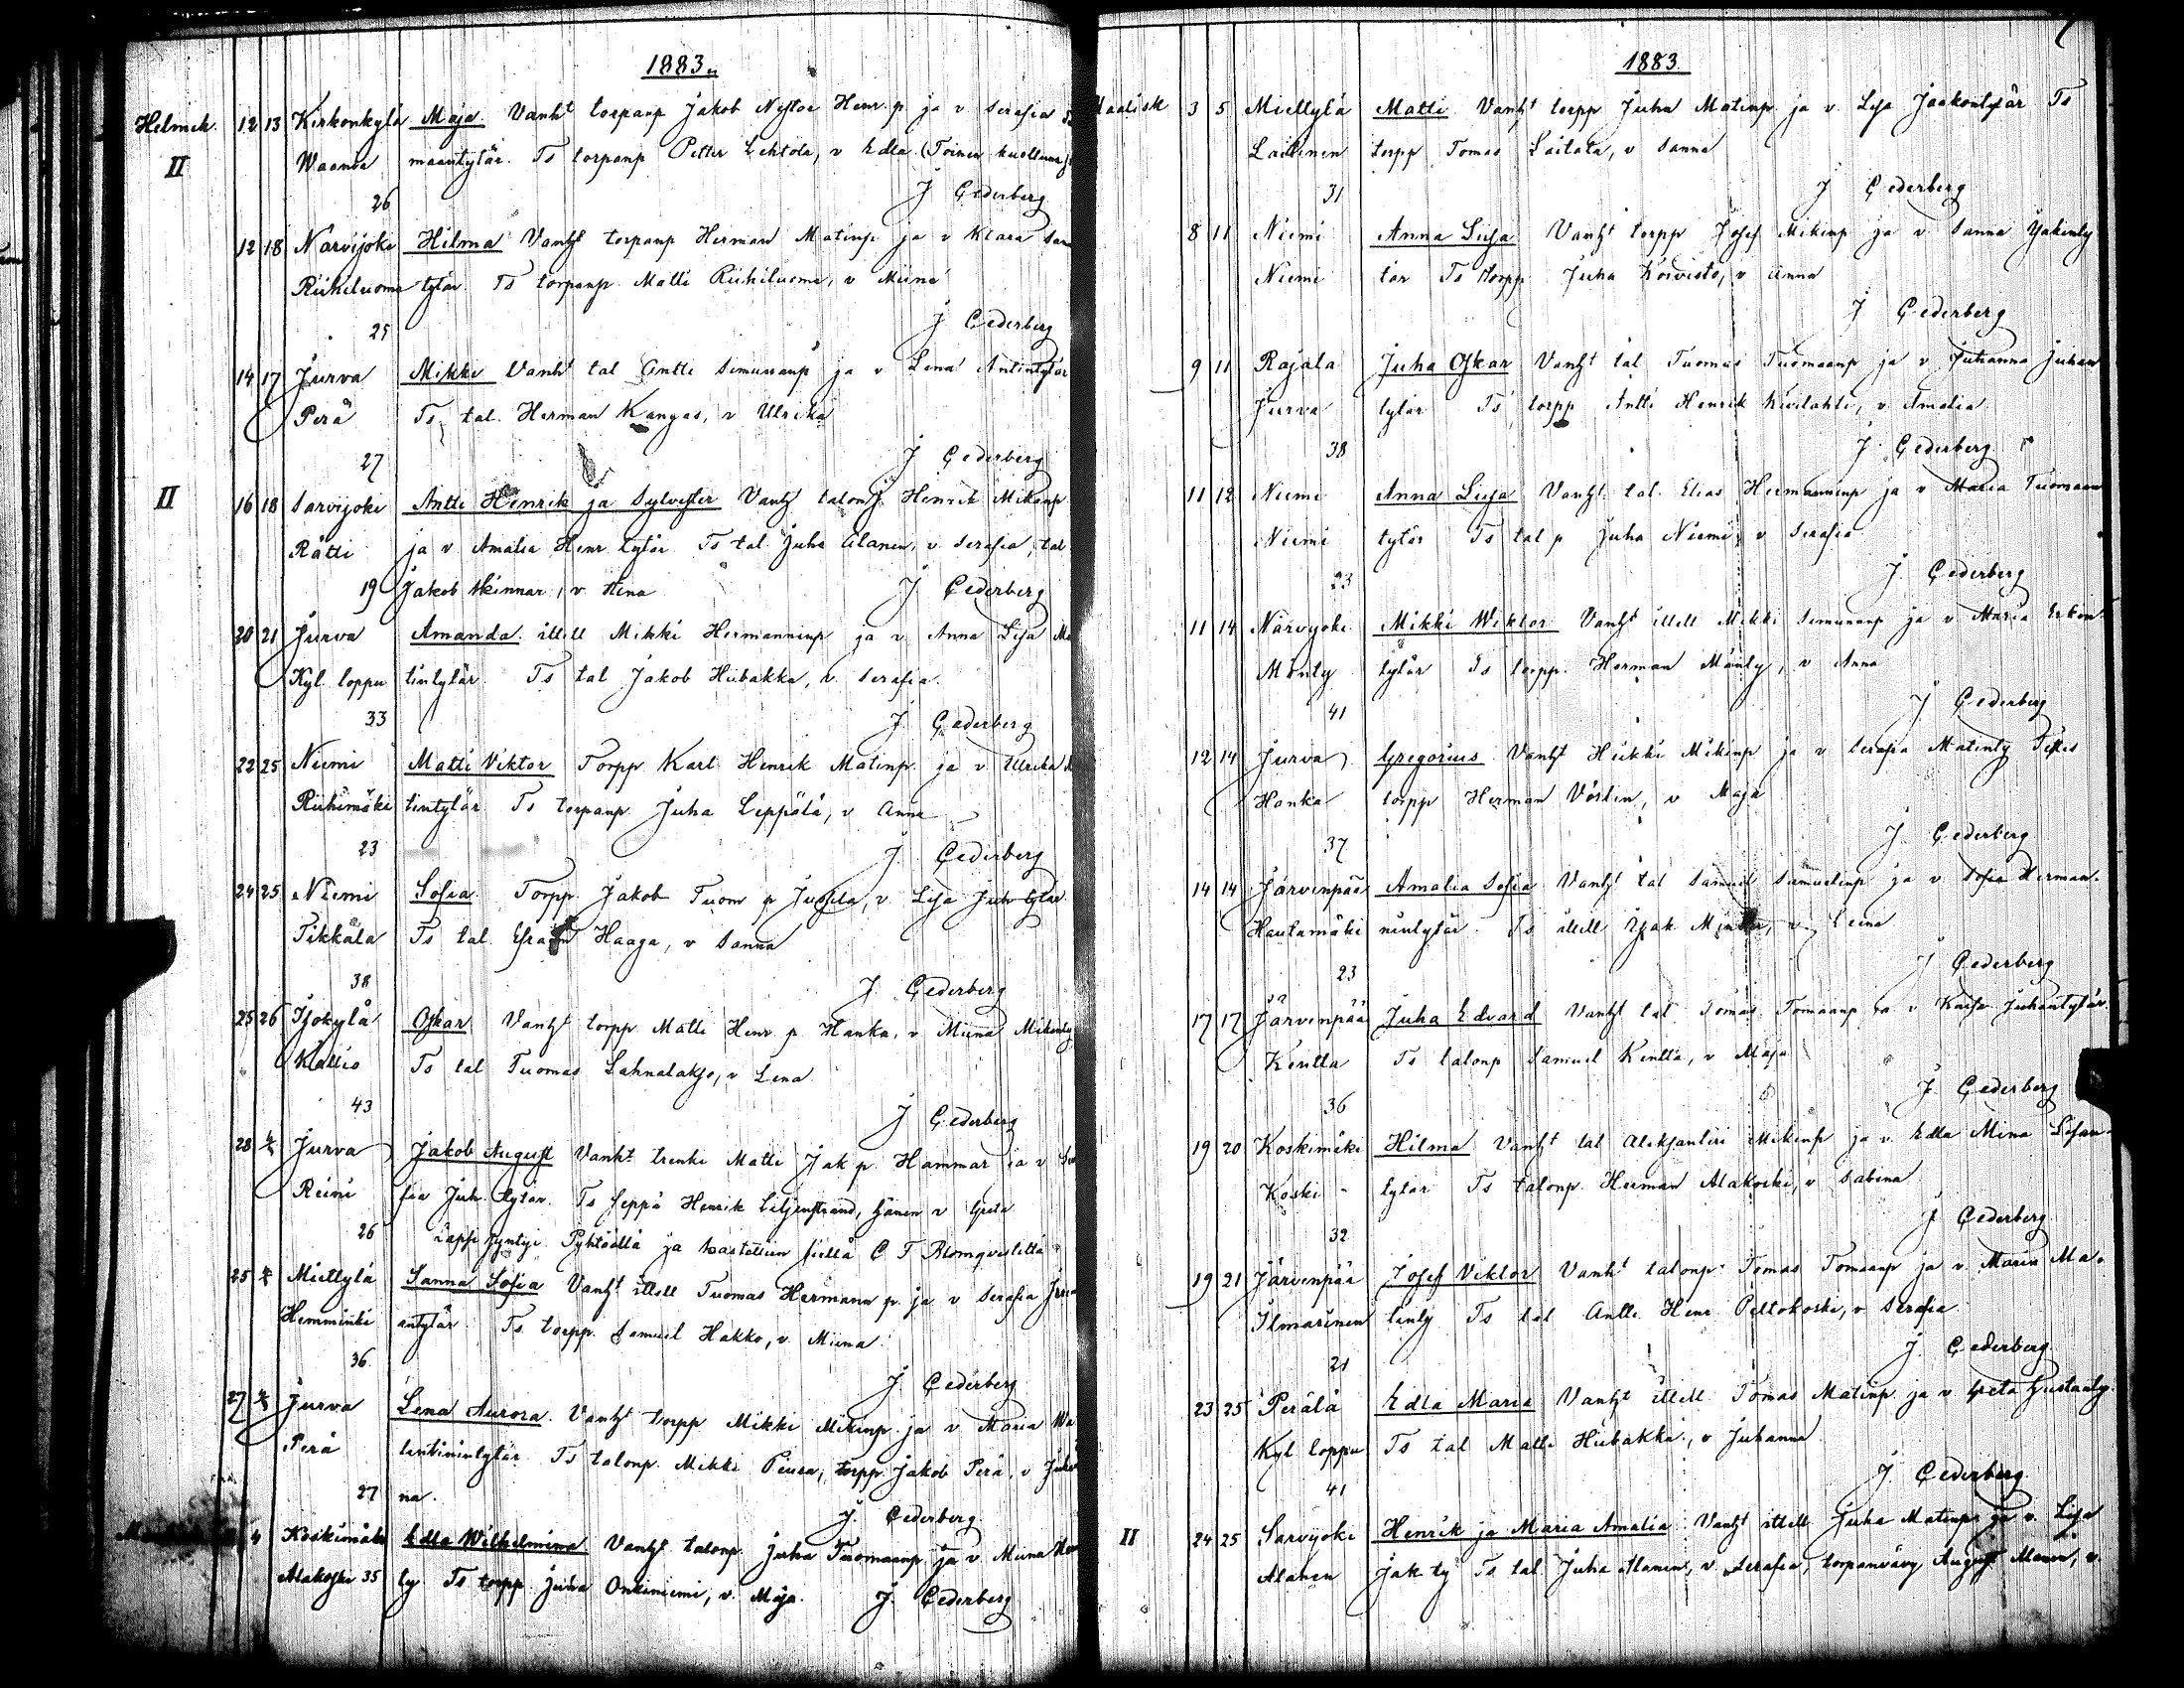 1883.
Helmik. 12 13 Kirkonkylä Maja Vanh^t torpanp Jakob Nestor Henr. p. ja v Serafia
II Waanba maantytär. Ts torpanp Petter Lehtola, v Edla. (Toinen kuolluna
26 J Cederberg
12 18 Närvijoki Hilma Vanh^t torpanp Herman Matinp ja v Klara
Riihiluoma tytär. Ts torpanp. Matti Riihiluoma, v Miina
25 J Cederberg
14 17 Jurva Mikki Vanh^t tal Antti Simunanp ja v Lena Antintytär
Perä Ts tal. Herman Kangas, v Ulrika
27 J Cederberg
II 16 18 Sarvijoki Antti Henrik ja Sylvester Vanh^t talonp. Henrik Mikinp
Rätti ja v Amalia Henr tytär Ts tal. Juha Alanen, v. Serafia, tal
19 Jakob Hinnar, v. Hena J Cederberg
20 21 Jurva Amanda. itell Mikki Hermanninp ja v Anna Lisa Ma
Kyl. loppu tintytär. Ts tal Jakob Hiibakka, v. Serafia.
33 J. Cederberg
22 25 Niemi Matti Viktor Torpp Karl Henrik Matinp ja v Ulrika
Riihimäki tintytär Ts torpanp. Juha Leppälä, v Anna
23 J. Cederberg
24 25 Niemi Sofia. Torpp. Jakob Tuom p Jussila, v Lisa Juh tytär.
Tikkala Ts tal. Haaga, v Sanna
38 J Cederberg
25 26 Ijokylä Oskar Vanh^t torpp Matti Henr p. Hanka, v Miina Mikinty
Kallio Ts tal Tuomas Lahnalakso, v Lena
43 J Cederberg
28 4/3 Jurva Jakob August Vanh^t trenki Matti Jak p. Hammar ja v
Reini fia Juh. tytär. Ts seppä Henrik Liljenstrand, hänen v Greta
26 Lapsi syntyi Pyhtäällä ja kastettiin siellä C T Blomqvistiltä
25 4/3 Mietlylä Sanna Sofia Vanh^t itell Tuomas Hermann p. ja v Serafia
Hemminki antytär. Ts torpp. Samuel Hakko, v. Miina
36. J. Cederberg
27 4/3 Jurva Lena Aurora. Vanh^t torpp Mikki Mikinp. ja v Maria Wa
Perä lentinintytär. Ts talonp. Mikki Peura, torpp. Jakob Perä, v Juha
27 na. J. Cederberg
4 Koskimäki Edla Wilhelmina Vanh^t talonp Juha Tuomaanp ja v Miina
Alakoski 35 ty. Ts torpp. Juha Onkiniemi, v. Maja. J. Cederberg
1883.
Maalisk 3 5 Mietlylä Matti Vanh^t torpp Juha Matinp. ja v. Lisa Jaakontytär Ts
Laitinen torpp Tomas Laitala, v Sanna
31 J Cederberg
8 11 Niemi Anna Lisa Vanh^t torpp Josef Mikinp ja v Sanna Isakinty
Niemi tär Ts torpp Juha Koivisto, v Anna
J Cederberg
9 11 Rajala Juha Oskar Vanh^t tal Tuomas Tuomaanp ja v Juhanna Juhan
Jurva tytär Ts torpp Antti Henrik Kivilahti, v. Amalia
38 J. Cederberg
11 12 Niemi Anna Lisa Vanh^t tal. Elias Hermanninp ja v Maria Tuomaan
Niemi tytär Ts tal p Juha Niemi, v Serafia
23 J. Cederberg
11 14 Närvijoki Mikki Wiktor Vanh^t itell Mikki Simunanp ja v Maria Erkin
Mänty tytär Ts torpp. Herman Mänty, v Anna
41 J Cederberg
12 14 Jurva Gregorius Vanh^t Heikki Mikinp ja v Serafia Matinty
Hanka torpp Herman Värlin, v Maja
37 J. Cederberg
14 14 Järvenpää Amalia Sofia Vanh^t tal Samuel Samuelinp ja v Sofia Herman.
Hautamäki nintytär. Ts itell Isak v. Leena
23 J Cederberg
17 17 Järvenpää Juha Edvard Vanh^t tal. Tomas Tomaanp ja v Kaisa Juhantytär.
Kentta Ts talonp Samuel Kentta, v Maja
36 J. Cederberg
19 20 Koskimäki Hilma Vanh^t tal Aleksanteri Mikinp ja v. Edla Mina
Koski - tytär Ts talonp. Herman Alakoski, v Sabina
32 J Cederberg
19 21 Järvenpää Josef Viktor Vanh^t talonp. Tomas Tomaanp ja v. Maria Ma-
Ilmarinen tinty Ts tal Antti Henr Peltokoski, v Serafia
21 J. Cederberg
23 25 Perälä Edla Maria Vanh^t itell Tomas Matinp. ja v Greta Gustaaty.
Kyl loppu Ts tal Matti Hiibakka, v Juhanna
41 J. Cederberg
II 24 25 Sarvijoki Henrik ja Maria Amalia Vanh^t itell Juha Matinp ja v. Lisa
Alanen Jak ty Ts tal. Juha Alanen, v. Serafia, torpanvävy August Alanen, v.